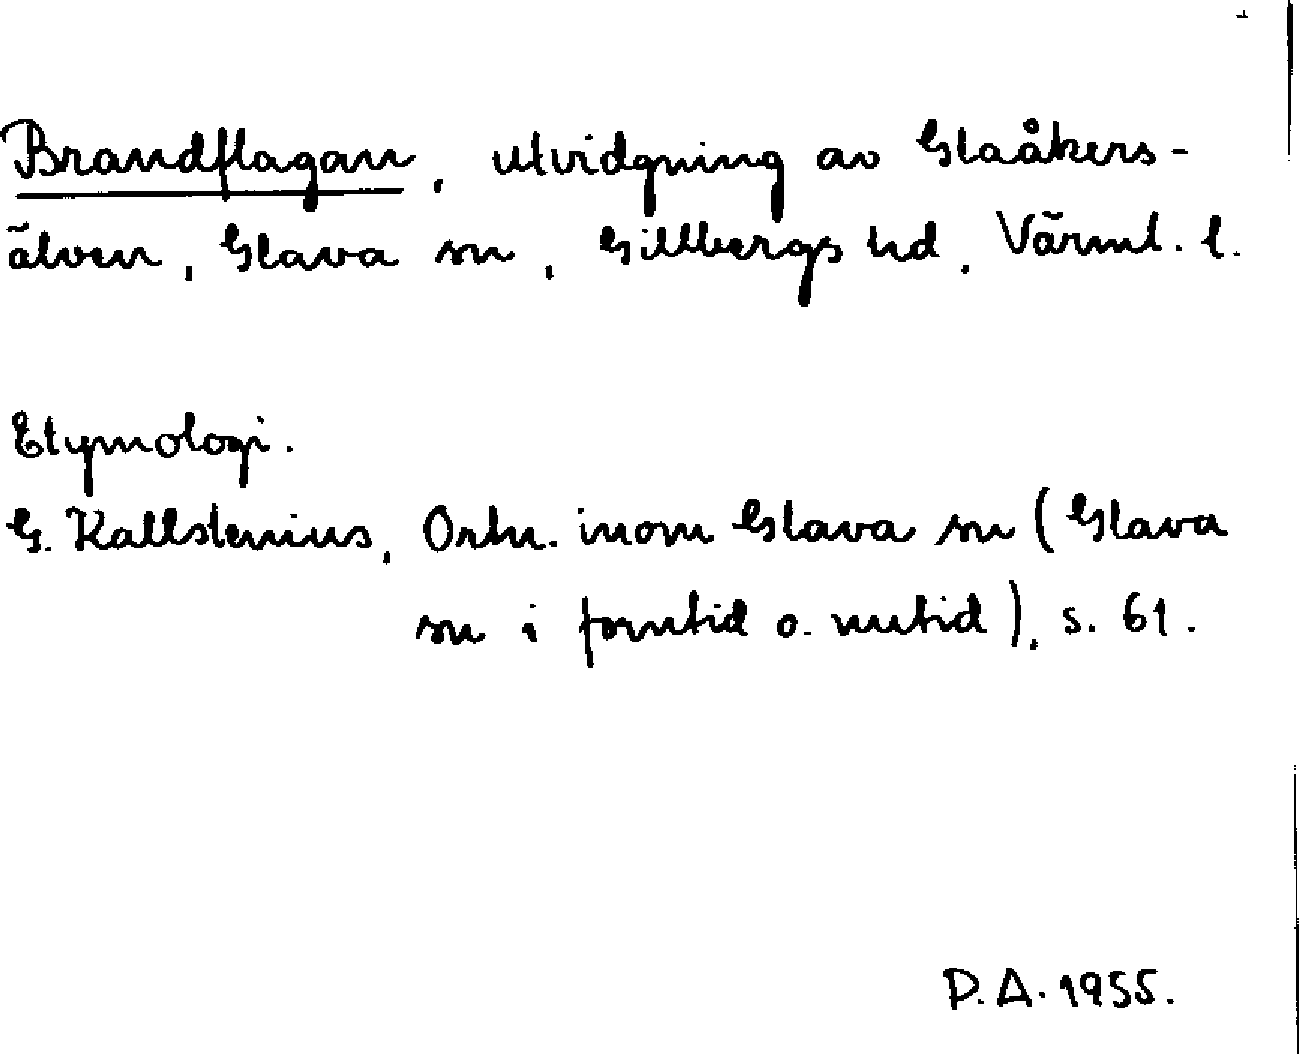 Brandflagan, utvidgning av Glaåkers-
älven, Glava sn, Gillbergs hd, Värml. l.
Etymologi.
G. Kallstenius, Ortn. inom Glava sn (Glava
sn i forntid o. nutid), s. 61.
D. A. 1955.